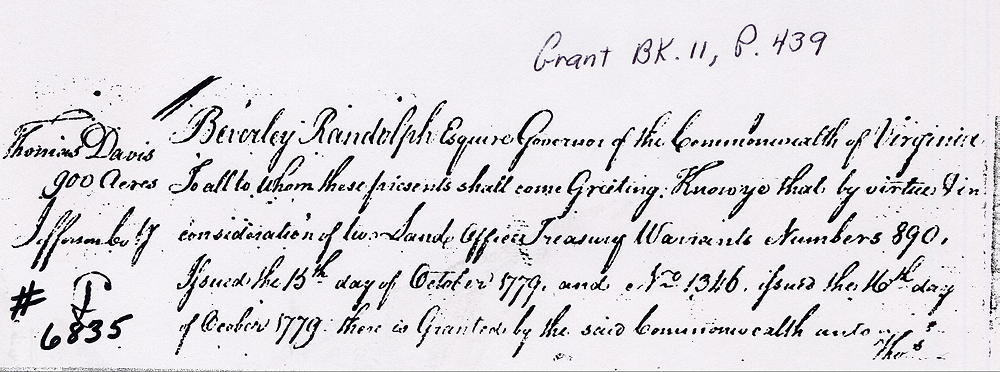 Grant BK. 11, P. 439
Thomas Davis
900 Acres
Jefferson Co
#
6835
Beverley Randolph Esquire Governor of the Commonwealth of Virginia
To all to whom these presents shall come Greeting: Know ye that by virtue & in
consideration of two Land Office Treasury Warrants Numbers 890,
Issued the 15th day of October 1779. and No 1346. issued the 16th day
of Ocober 1779. there is Granted by the said Commonwealth unto
Thos